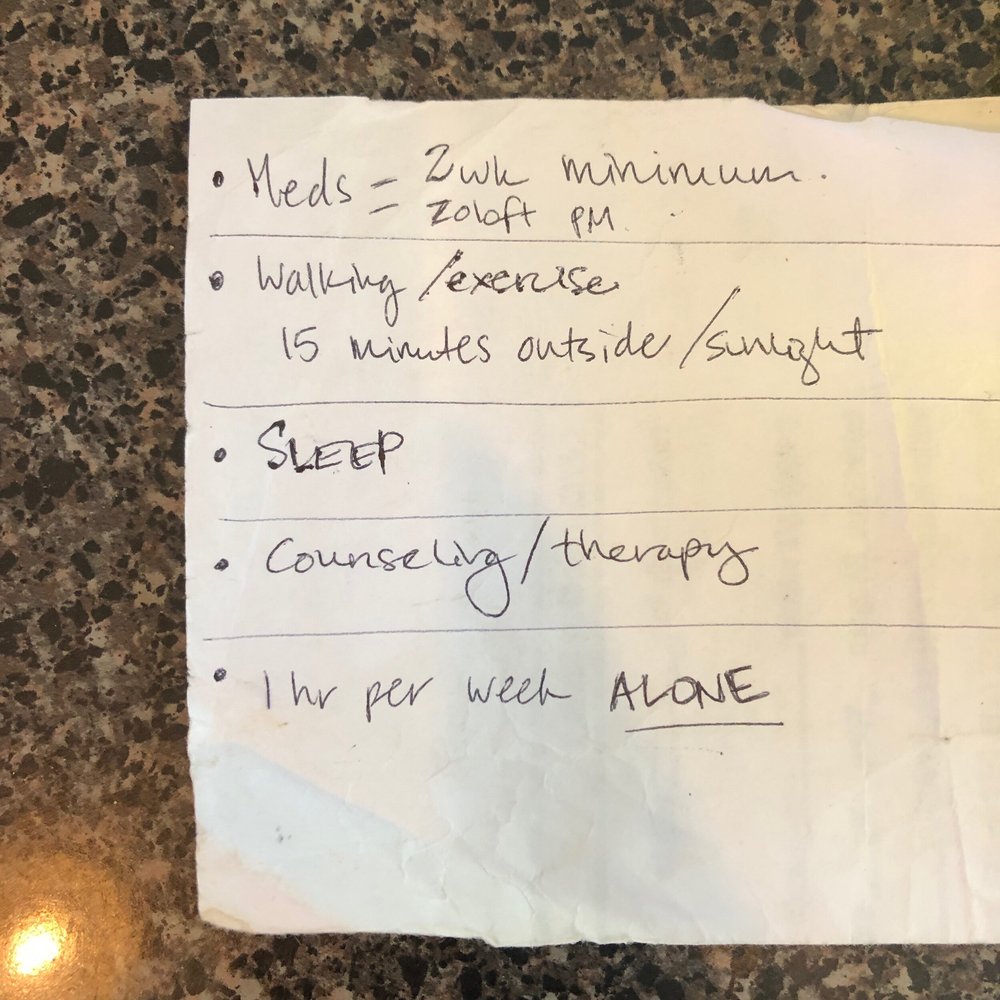 • Meds = 2wk minimum.
Zoloft PM.
• Walking /exercise
15 minutes outside/sunlight
• SLEEP
• Counseling/therapy
• 1 hr per week ALONE